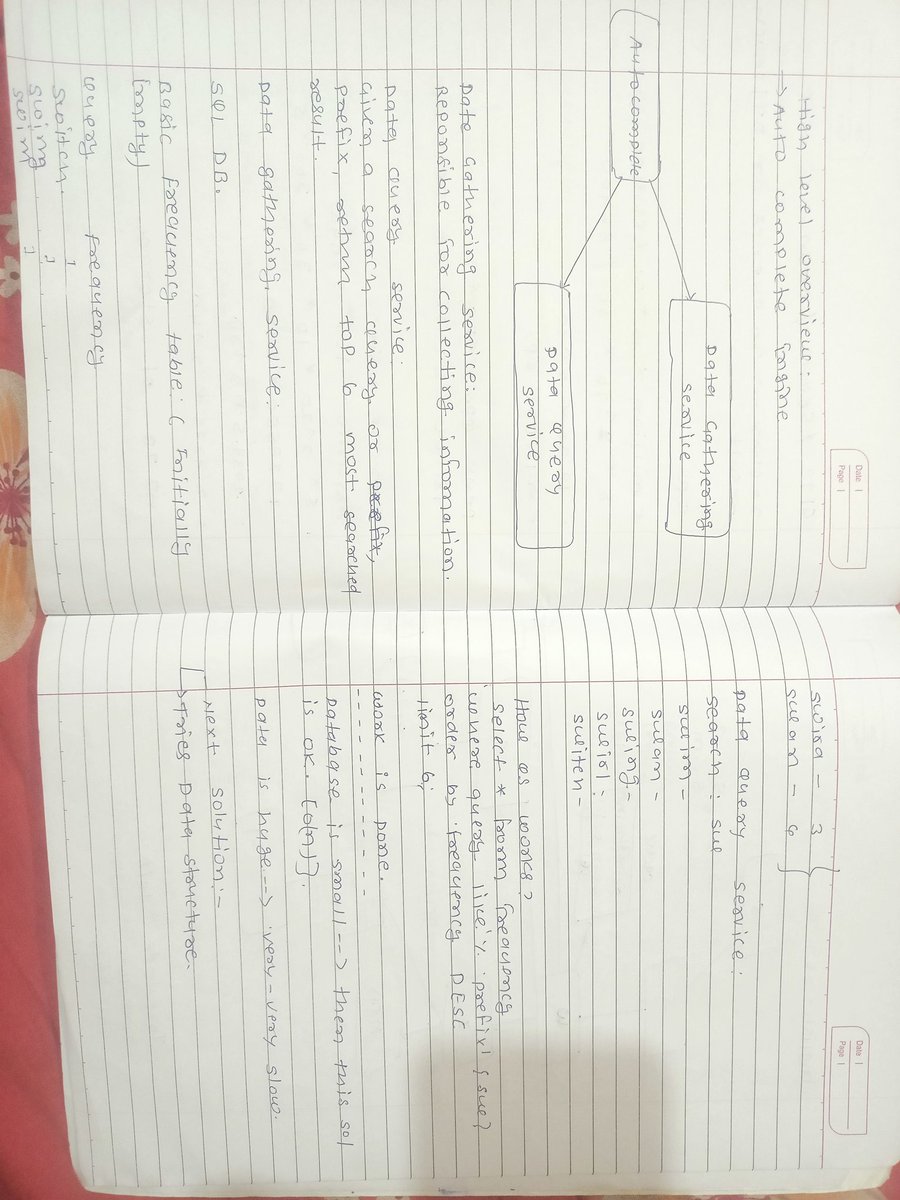 Date |
Page |
High level overview:
→ Auto complete Engine
Autocomplete
Data Gathering
service
Data Query
service
Data Gathering service:
Reponsible for collecting information.
Data Query service:
Given a search query or prefix,
prefix, return top 6 most searched
result.
Data gathering service:
SQL DB.
Basic frequency table: ( Initially
Empty)
Query frequency
switch. 1
swing 2
Date |
Page |
swira - 3
swam - 6
Data Query service:
search: sw
swim -
swam -
swing -
swirl :
switch -
How QS works?
select * from frequency
where query like % prefix | { sw }
order by frequency DESC
limit 6;
Work is Done.
Database is small --> then this sol
is ok. [O(n)].
Data is huge --> very-very slow.
Next solution:-
↳ Tries Data structure.